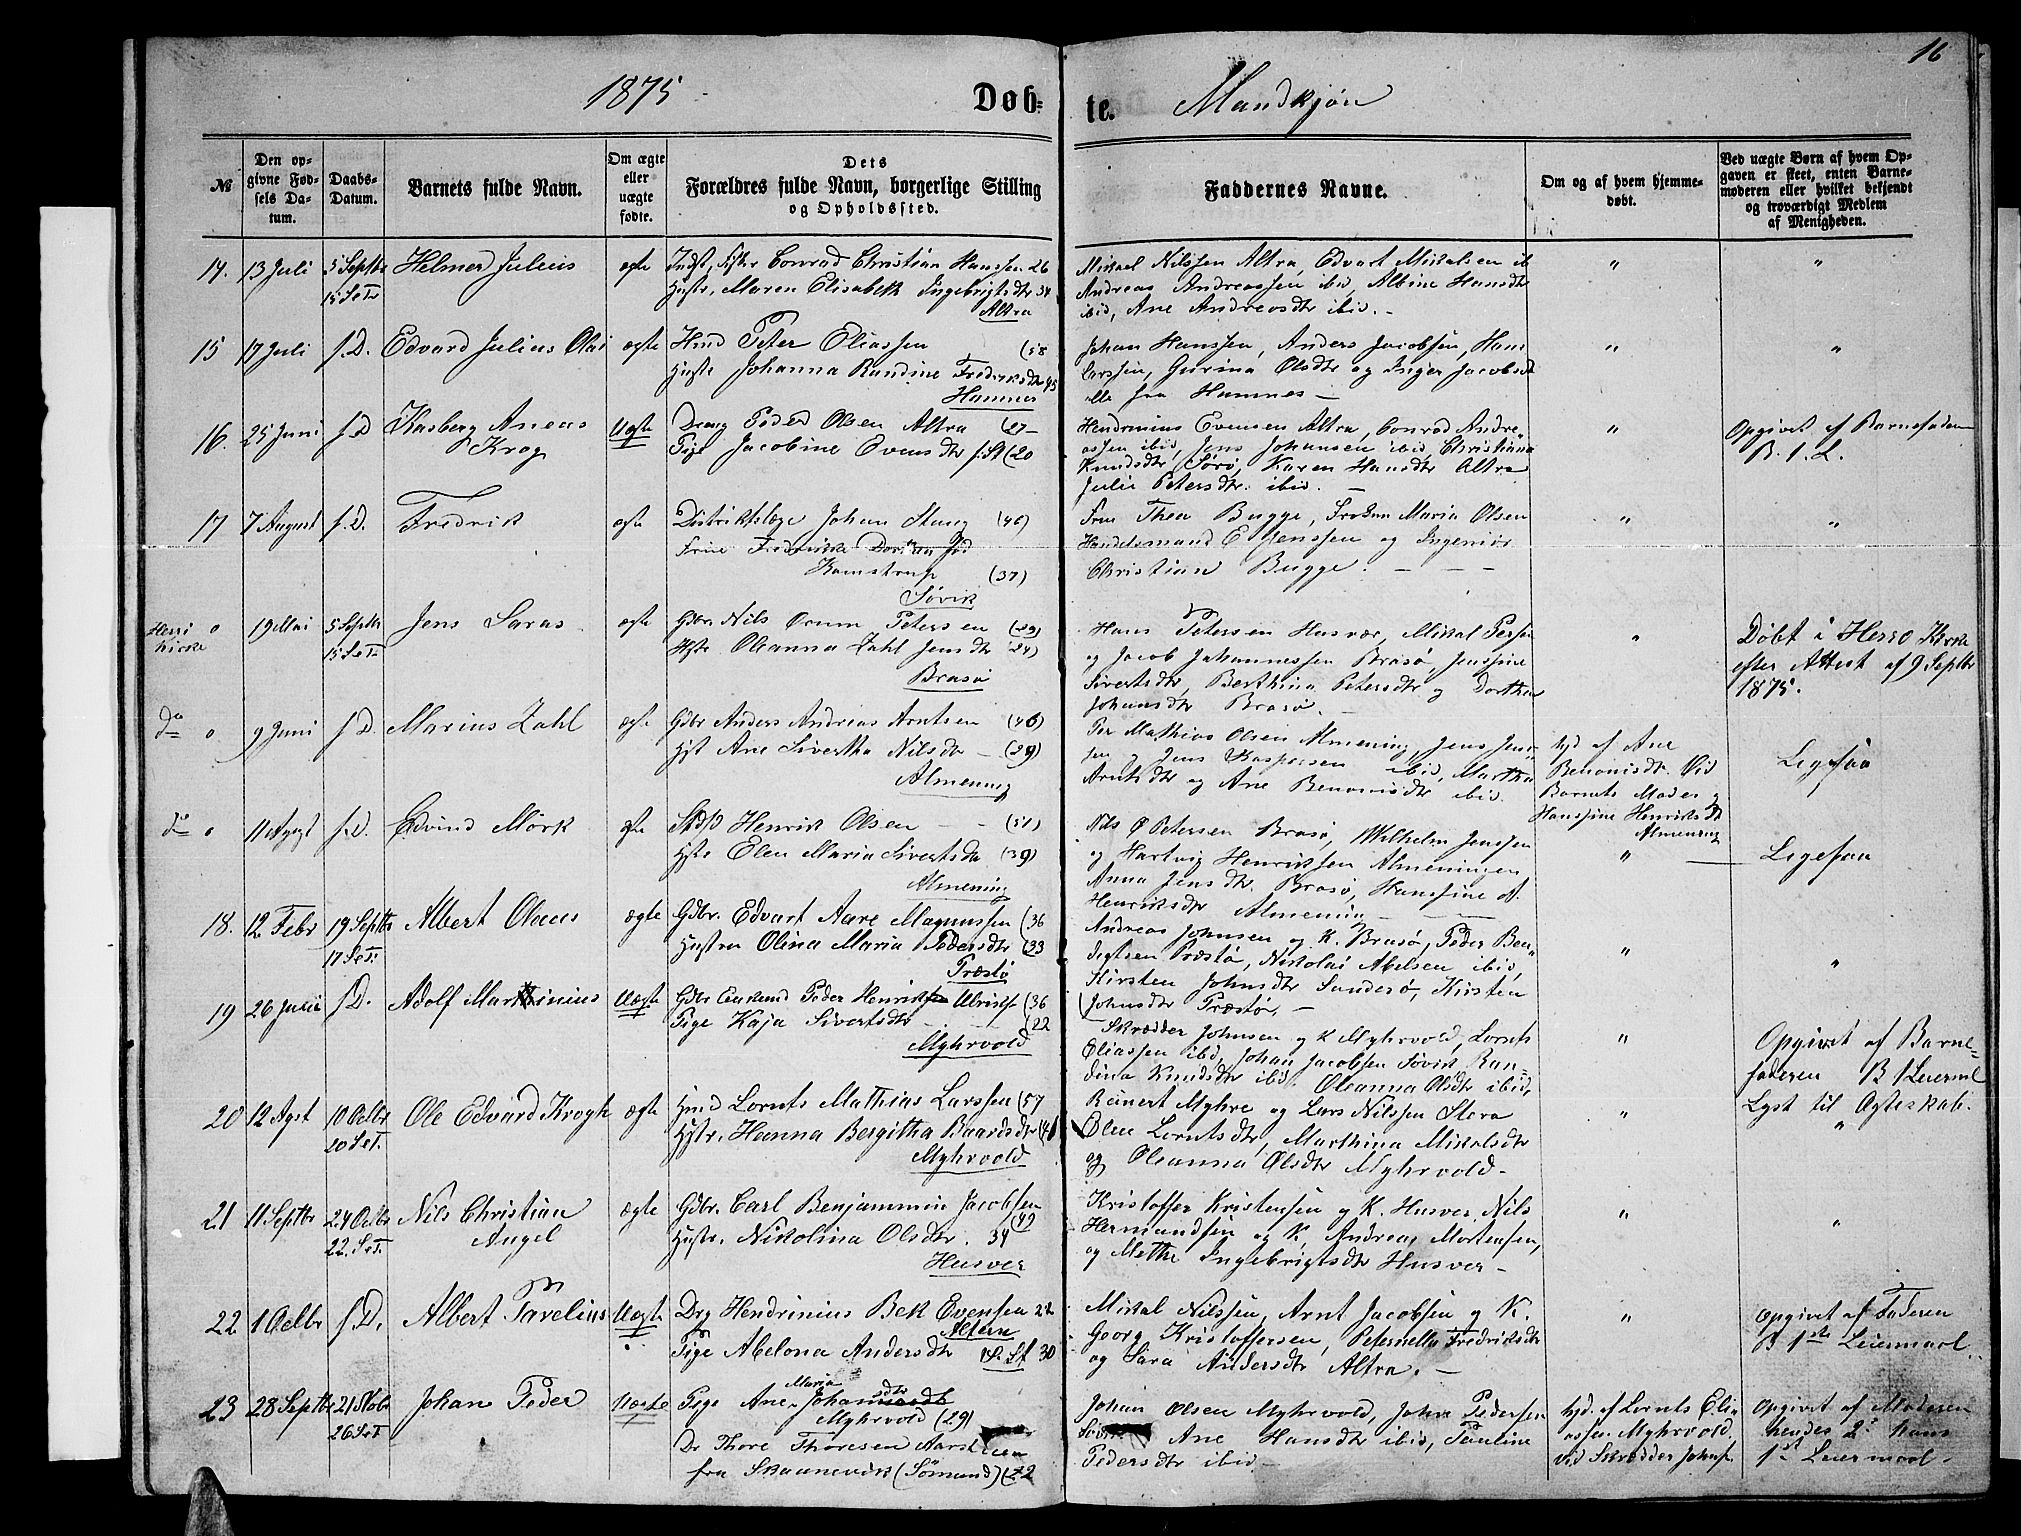 16
1875
Døb-
te.
Mandkjøn
№
Den op-
givne Fød-
sels Da-
tum.
Daabs-
Datum.
Barnets fulde Navn.
Om ægte
eller
uægte
fødte.
Dets
Forældres fulde Navn, borgerlige Stilling
og Opholdssted.
Faddernes Navne.
Om og af hvem hjemme-
døbt.
Ved uægte Børn af hvem Op-
gaven er skeet, enten Barne-
moderen eller hvilket bekjendt
og troværdigt Medlem
af Menigheden.
14. 13 Juli 5 Septbr Helmer Julius ægte Indst, Fisker Conrad Christian Hanssen 26
15 S e T. Hustr. Maren Elisabeth Ingebrigtsdtr 34
Altra
Mikael Nilssen Altra, Edvart Mikalsen ib
Andreas Andreassen ibid, Albine Hansdtr
ibid, Ane Andreasdtr ibid. -
" "
15 17 Juli s. D. Edvard Julius Olai ægte Hmd Peter Eliassen (58
Hustr Johanna Randine Fredriksdtr 45
Hamnes
Johan Hanssen, Anders Jacobsen, Hans
Larssen, Gurina Olsdtr og Inger Jacobsdt
alle fra Hamnes -
" "
16. 25 Juni s. D Kasberg Aneas Uægte Dreng Peder Olsen Altra (27-
Krog Pige Jacobine Evensdtr s. St (20
Hendrinius Evensen Altra, Conrad Andre-
assen ibid, Jens Johansen ibid, Christiana
Knudsdtr Sørø, Karen Hansdtr Altra
Julie Petersdtr. ibid. -
"
Opgivet af Barnefaderen
B. 1. L.
17 7 August s. D. Fredrik ægte Distriktslæge Johan Stang (46)
Frue Fredrikke
Kamstrup (37)
Søvik
Frue Thea Bugge, Frøken Maria Olsen
Handelsmand E Jenssen og Ingeniør
Christian Bugge. - - -
" "
Herrø
Kirke
o 19 Mai 5 Septbr Jens Laras ægte Gdbr Nils Ovum Peterssen (29)
15 S e T. Hst Oleanna Zahl Jensdtr (24)
Brasø
Hans Peterssen Husvær, Mikal Persen
og Jacob Johannessen Brasø, Jenssine
Sivertsdtr, Berthina Petersdtr og Dorthea
Johansdtr Brasø. -
"
Døbt i Herrø Kirke
efter Attest af 9 Septbr
1875.
do o 9 Juni s. D. Marius Zahl ægte Gdbr Anders Andreas Arntsen (46)
Hst Ane Sivertha Nilsdtr - (29)
Almening
Per Mathias Olsen Almening, Jens Jens-
sen og Jens Kaspersen ibid, Martha
Arntsdtr og Ane Benonisdtr ibid.
hjd af Ane
Benonisdtr. Ved
Barnets Moder og
Hanssine Henriksdtr
Almening
Ligesaa
do o 11 Augst s. D. Edvind Mörk ægte Henrik Olsen - - (51)
Hst Elen Maria Sivertsdtr (39)
Almening
Nils O Petersen Brasø, Wilhelm Jenssen
og Hartvig Henrikssen Almeningen
Anna Jensdtr Brasø, Hanssine A.
Henriksdtr Almening - - -
"
Ligesaa
18. 12 Febr 19 Septbr Albert Olaus ægte Gdbr. Edvart Aare Magnussen (36
17 S e T. Hustru Olina Maria Pedersdtr (33
Præstø
Andreas Johnsen og K. Brasø, Peder Ben-
digtsen Præstø, Nikolai Abelsen ibid,
Kirsten Johnsdtr Sandersø, Kirsten
Johnsdtr Præstø, -
" "
19 26 Juli s. D. Adolf Martinius Uægte Gdbr Enkemd Peder Henrik Ulriksen (36
Pige Kaja Sivertsdtr - - (22
Myhrvold
Skrædder Johnsen og K Myhrvold, Lornts
Eliassen ibid, Johan Jacobsen Søvik Ran-
dina Knudsdtr ibid. Oleanna Olsdtr ibid,
"
Opgivet af Barne-
faderen B 1 Leierml
Lyst til Ægteskab.
20 12 Agst 10 Octbr Ole Edvard Krogh ægte Hmd Lornts Mathias Larssen (57
20 S e T. Hstr. Hanna Bergitha Baardsdtr (41
Myhrvold
Reinert Myhre og Lars Nilssen Stora
Elen Lorntsdtr, Marthina Mikalsdtr
og Oleanna Olsdtr Myhrvold-
" "
21 11 Septbr 24 Octbr Nils Christian ægte Gdbr. Carl Benjammin Jacobsen
22. S e T. Angel Hustr. Nikolina Olsdtr. 34 (42
Husver
Kristoffer Kristensen og K. Husver, Nils
Hermandsen og K, Andreas Mortensen,
og Methe Ingebrigtsdtr Husver-
" "
22 1 Octbr s. D. Albert Parelius Uægte Drg Hendrinius Bek Evensen 22
Altern
Pige Abelona Andersdtr s. St 30
Mikal Nilssen, Arnt Jacobsen og K.
Georg Kristoffersen, Peternella Fredriksdtr
og Sara Andersdtr Altra. -
"
Opgivet af Faderen
B 1ste Leiermaal.
23 28 Septbr 21 Novbr Johan Peder Uægte Pige Ane Maria Johansdtr
26 S e T Myhrvold (29)
Dr Thore Thoresen
fra Skaanevik (Sømand) (22
Johan Olsen Myhrvold, John Pedersen
Søvik Ane Hansdtr ibid, Pauline
Pedersdtr ibid -
hjd. af Lornts Eli-
assen Myhrvold,
vid Skrædder Johns.
Opgivet af Moderen
hendes 2. hans
1st Leiermaal -